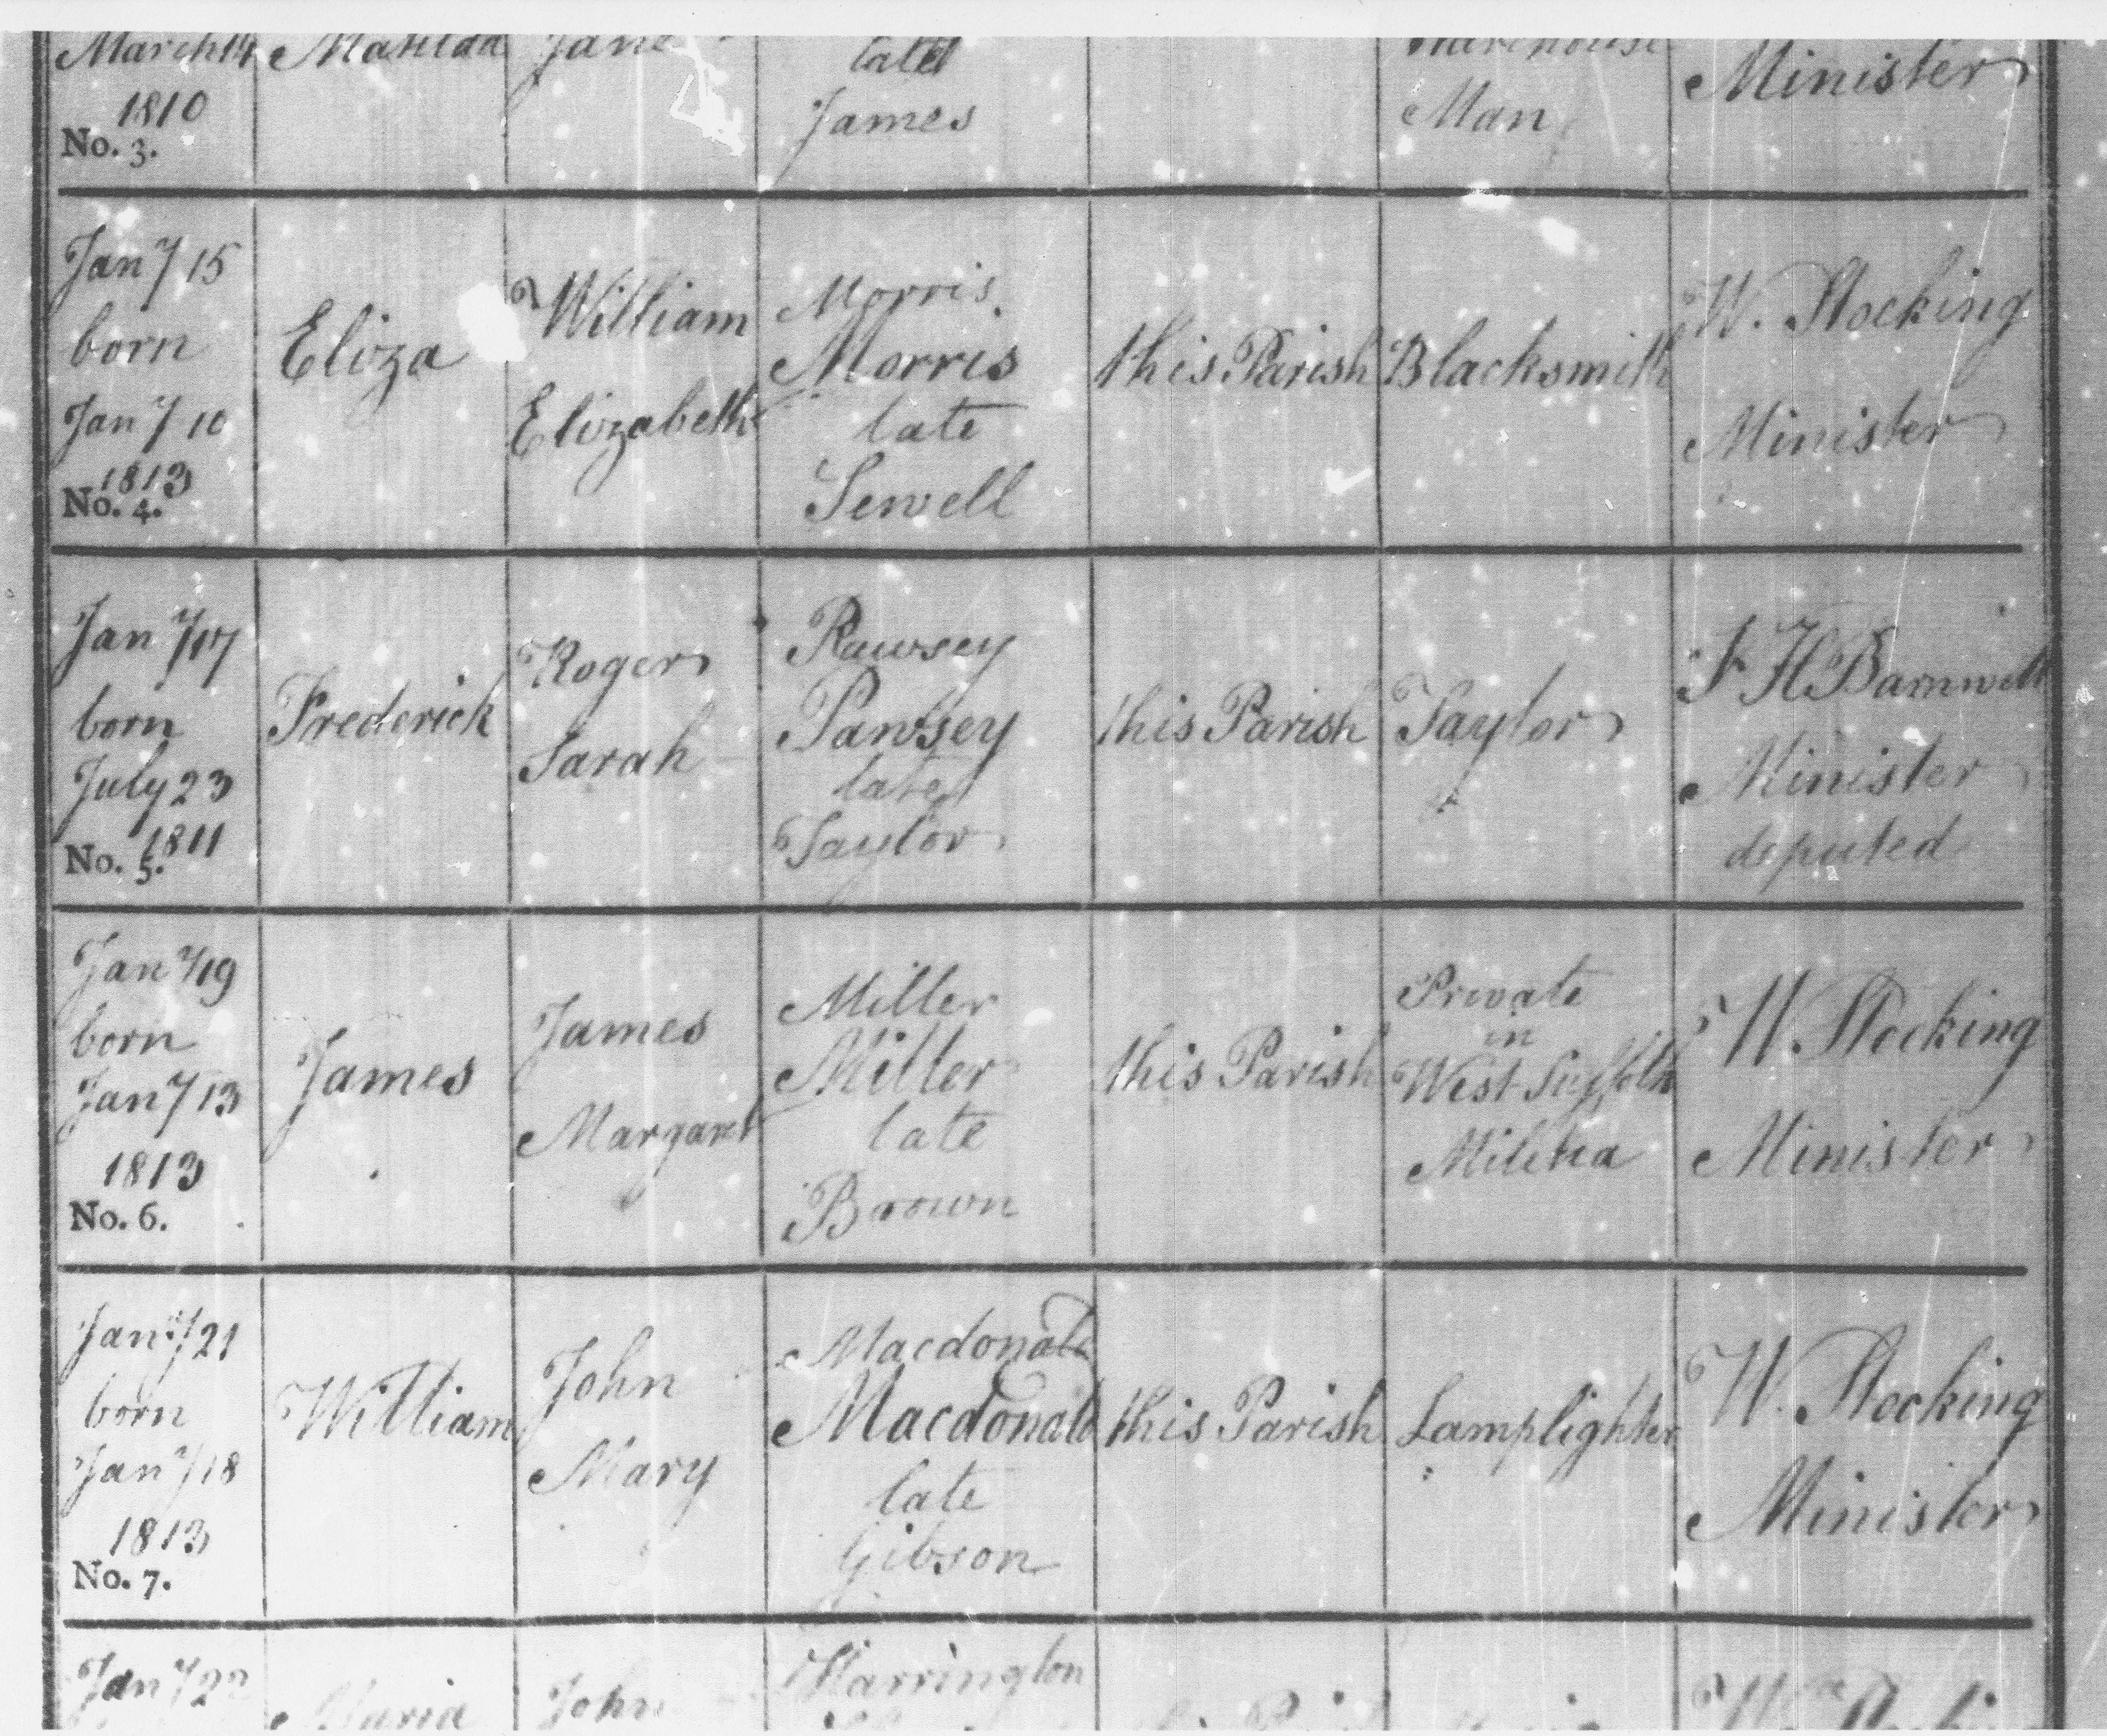 March 14 Matilda Jane late Warehouse Minister
1810 James Man
No. 3.
Jany 15 born Jany 10 1813
No. 4.
Eliza
William
Elizabeth
Morris
Morris
late
Sewell
this Parish
Blacksmith
W. Stocking
Minister
Jany 17
born
July 23
1811
No. 5.
Frederick
Roger
Sarah
Pawsey
Pawsey
late
Taylor
this Parish
Taylor
F H Barnwell
Minister
deputed
Jany 19
born
Jany 13
1813
No. 6.
James
James
Margaret
Miller
Miller
late
Brown
this Parish
Private
in
West Suffolk
Militia
W. Stocking
Minister
Jany 21
born
Jany 18
1813
No. 7.
William
John
Mary
Macdonald
Macdonald
late
Gibson
this Parish
Lamplighter
W. Stocking
Minister
Jany 22
Maria
John
Harrington